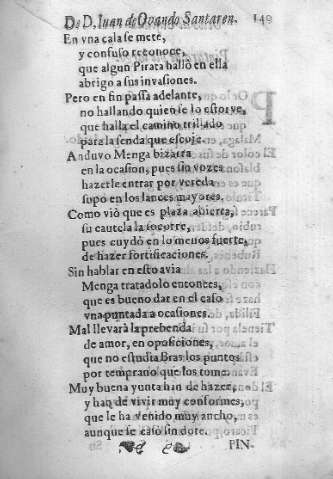 De D. Iuan de Ovando Santaren. 149
En vna cala se mete,
y confuso reconoce,
que algun Pirata hallò en ella
abrigo a sus invasiones.
Pero en fin passa adelante,
no hallando quien se lo estorve,
que halla el camino trillado
para la senda que escoje.
Anduvo Menga bizarra
en la ocasion, pues sin vozes
hazerle entrar por vereda
supo en los lances mayores.
Como viò que es plaza abierta,
su cautela la socorre,
pues cuydò en lo menos fuerte,
de hazer fortificaciones.
Sin hablar en esto avia
Menga tratadolo entonces,
que es bueno dar en el caso
vna puntada a ocasiones.
Mal llevarà la prebenda
de amor, en oposiciones,
que no estudia Bras los puntos
por temprano que los tome.
Muy buena yunta han de hazer,
y han de vivir muy conformes,
que le ha venido muy ancho,
aunque se casò sin dote.
PIN-